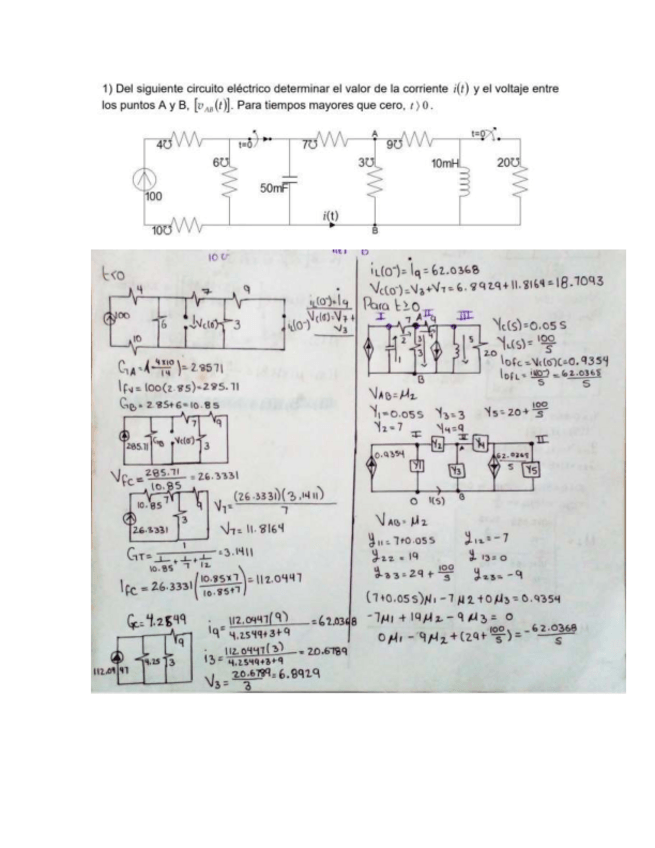 1) Del siguiente circuito eléctrico determinar el valor de la corriente i(t) y el voltaje entre
los puntos A y B, [v_AB(t)]. Para tiempos mayores que cero, t⟩0.
4℧ t=0 7℧ A 9℧ t=0
6℧ 3℧ 10mH 20℧
50mF
100
10℧ i(t) B
t<0
4 7 9
100 6 Vc(0-) 3 iL(0-)
10
iL(0-)=i9
Vc(0-)=V7+
V3
GA=(4x10/14)=2.8571
Ifv=100(2.85)=285.71
GB=2.85+6=10.85
7 9
285.71 GB Vc(0-) 3
Vfc=285.71/10.85=26.3331
10.85 7 3 9
26.3331
V7=(26.3331)(3.1411)/7
V7=11.8164
GT=1/(1/10.85+1/7+1/12)=3.1411
Ifc=26.3331(10.85x7/10.85+7)=112.0447
Gc=4.2549
9
112.0447 4.25 3
i9=112.0447(9)/4.2549+3+9=62.0368
i3=112.0447(3)/4.2549+3+9=20.6789
V3=20.6789/3=6.8929
iL(0-)=i9=62.0368
Vc(0-)=V3+V7=6.8929+11.8164=18.7093
Para t≥0
I 7 A II 9 III
20
B
Yc(s)=0.05s
YL(s)=100/s
IofC=Vc(0-)C=0.9354
IofL=iL(0-)/s=62.0368/s
VAB=μ2
Y1=0.05s Y3=3 Y5=20+100/s
Y2=7 Y4=9
I Y2 II Y4 III
0.9354 Y1 Y3 62.0368/s Y5
0 I(s) B
VAB=μ2
y11=7+0.05s y12=-7
y22=19 y13=0
y33=29+100/s y23=-9
(7+0.05s)μ1-7μ2+0μ3=0.9354
-7μ1+19μ2-9μ3=0
0μ1-9μ2+(29+100/s)=-62.0368/s